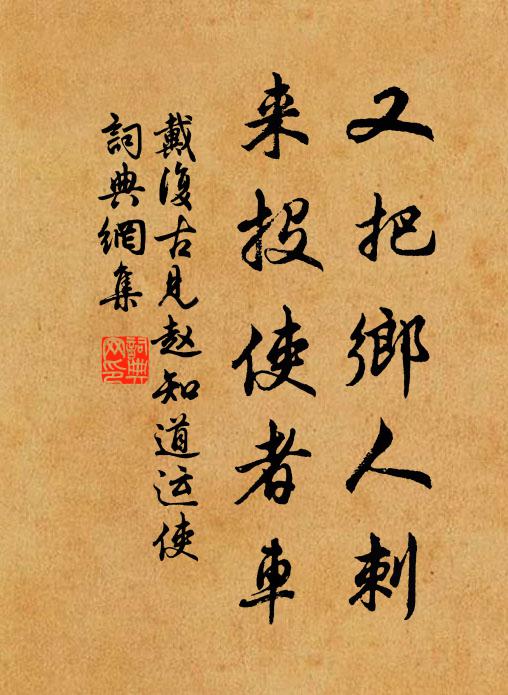 又把鄉人刺
来投使者車
戴復古見赵知道运使
詞典網集
詞典
网印